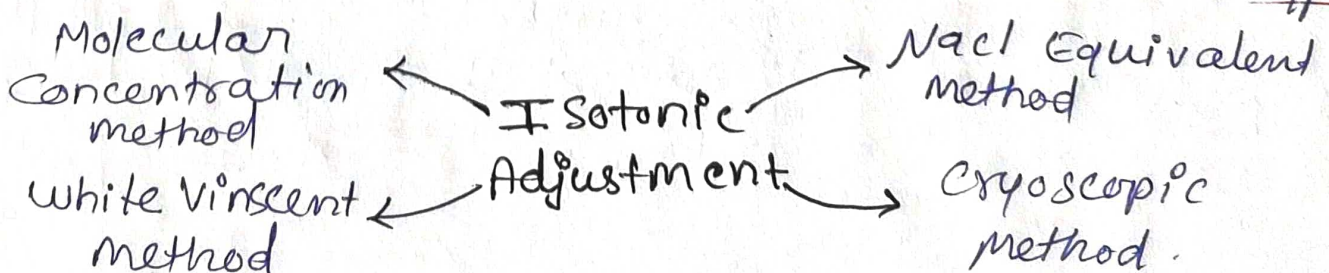 Molecular
Concentration
method
Nacl Equivalent
Method
Isotonic
Adjustment
White Vinscent
Method
Cryoscopic
Method.